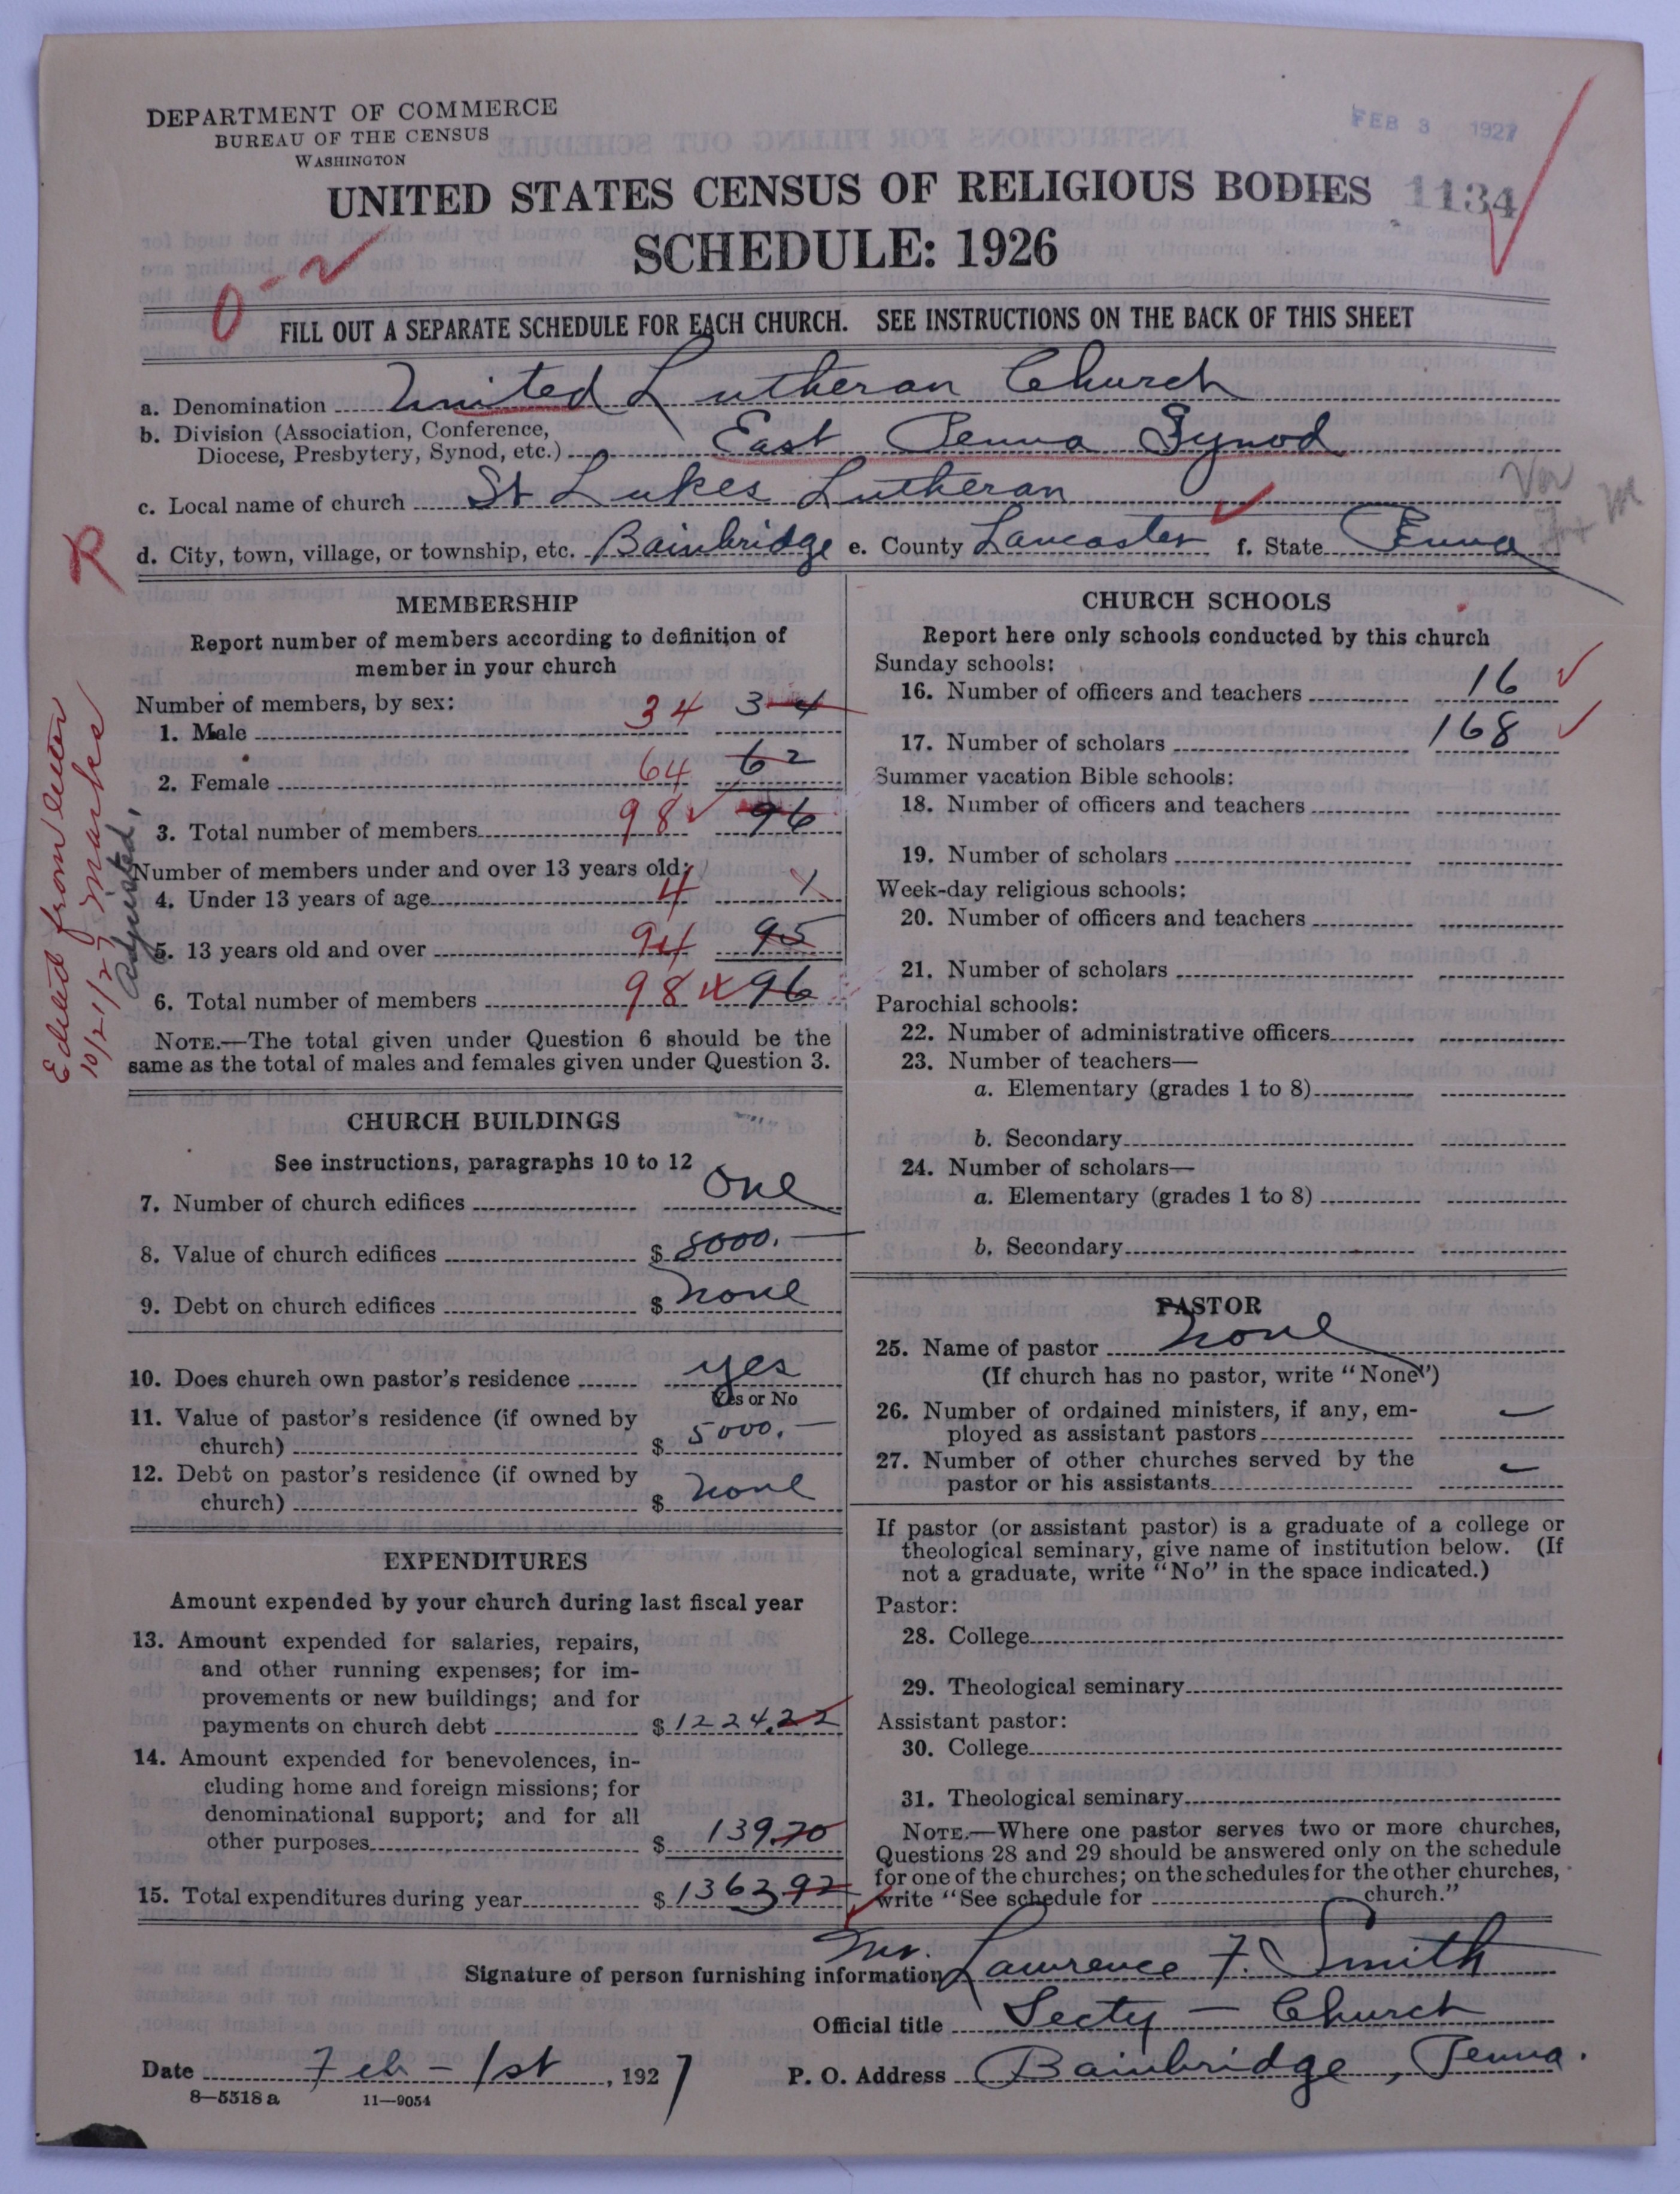 DEPARTMENT OF COMMERCE
BUREAU OF THE CENSUS
WASHINGTON
FEB 3 1927
UNITED STATES CENSUS OF RELIGIOUS BODIES 1134
SCHEDULE: 1926
0-2
FILL OUT A SEPARATE SCHEDULE FOR EACH CHURCH. SEE INSTRUCTIONS ON THE BACK OF THIS SHEET
a. Denomination United Lutheran Church
b. Division (Association, Conference,
Diocese, Presbytery, Synod, etc.) East Penna Synod
c. Local name of church St Lukes Lutheran
d. City, town, village, or township, etc. Bainbridge e. County Lancaster f. State Penna
MEMBERSHIP
Report number of members according to definition of
member in your church
Number of members, by sex:
1. Male 34 34
2. Female 64 62
3. Total number of members 98 96
Number of members under and over 13 years old:
4. Under 13 years of age 4 1
5. 13 years old and over 94 95
6. Total number of members 98 96
NOTE.—The total given under Question 6 should be the
same as the total of males and females given under Question 3.
Edited from letter
10/21/27 Marks
adjusted,
CHURCH BUILDINGS
See instructions, paragraphs 10 to 12
7. Number of church edifices One
8. Value of church edifices $ 8000.—
9. Debt on church edifices $ none
10. Does church own pastor's residence yes
Yes or No
11. Value of pastor's residence (if owned by
church) $ 5000.—
12. Debt on pastor's residence (if owned by
church) $ none
EXPENDITURES
Amount expended by your church during last fiscal year
13. Amount expended for salaries, repairs,
and other running expenses; for im-
provements or new buildings; and for
payments on church debt $ 1224.22
14. Amount expended for benevolences, in-
cluding home and foreign missions; for
denominational support; and for all
other purposes $ 139.70
15. Total expenditures during year $ 1363 92
CHURCH SCHOOLS
Report here only schools conducted by this church
Sunday schools:
16. Number of officers and teachers 16
17. Number of scholars 168
Summer vacation Bible schools:
18. Number of officers and teachers
19. Number of scholars
Week-day religious schools:
20. Number of officers and teachers
21. Number of scholars
Parochial schools:
22. Number of administrative officers
23. Number of teachers—
a. Elementary (grades 1 to 8)
b. Secondary
24. Number of scholars—
a. Elementary (grades 1 to 8)
b. Secondary
PASTOR
25. Name of pastor none
(If church has no pastor, write "None")
26. Number of ordained ministers, if any, em-
ployed as assistant pastors —
27. Number of other churches served by the
pastor or his assistants —
If pastor (or assistant pastor) is a graduate of a college or
theological seminary, give name of institution below. (If
not a graduate, write "No" in the space indicated.)
Pastor:
28. College
29. Theological seminary
Assistant pastor:
30. College
31. Theological seminary
NOTE.—Where one pastor serves two or more churches,
Questions 28 and 29 should be answered only on the schedule
for one of the churches; on the schedules for the other churches,
write "See schedule for church."
Signature of person furnishing information Mr. Lawrence F. Smith
Official title Secty — Church
Date Feb - 1st, 1927 P. O. Address Bainbridge, Penna.
8—5518 a 11—9054